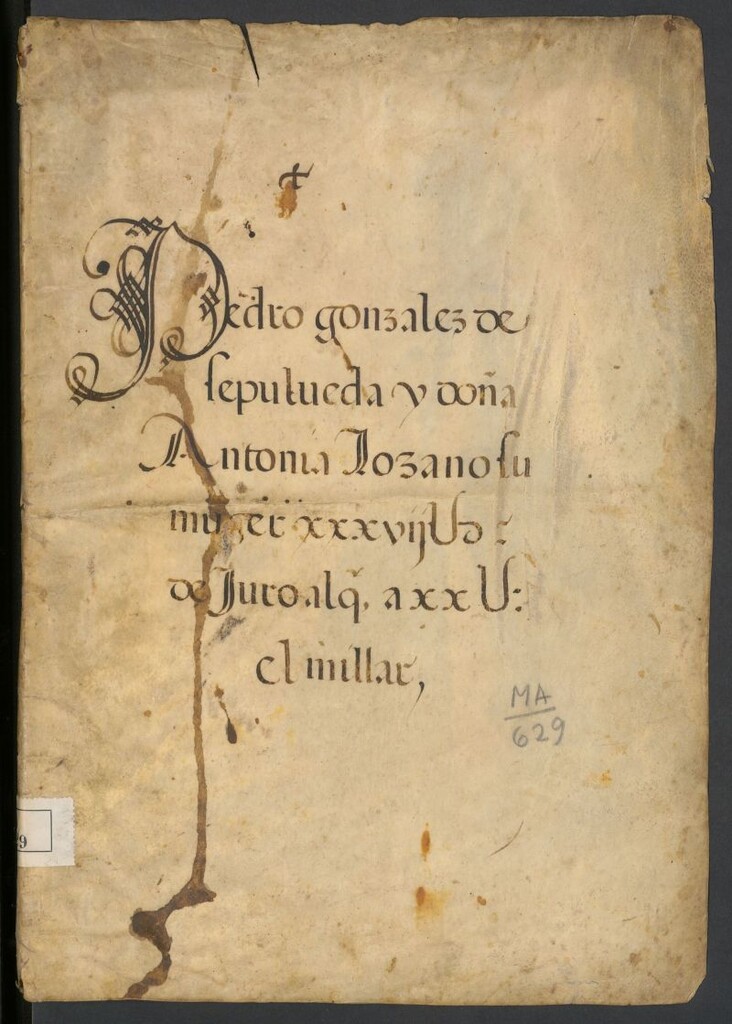 +
Pedro gonzales de
sepulueda y doña
Antonia Lozano su
muger xxxvijU
de Juro alq̃. a xx U:
el millar,
MA
629
9